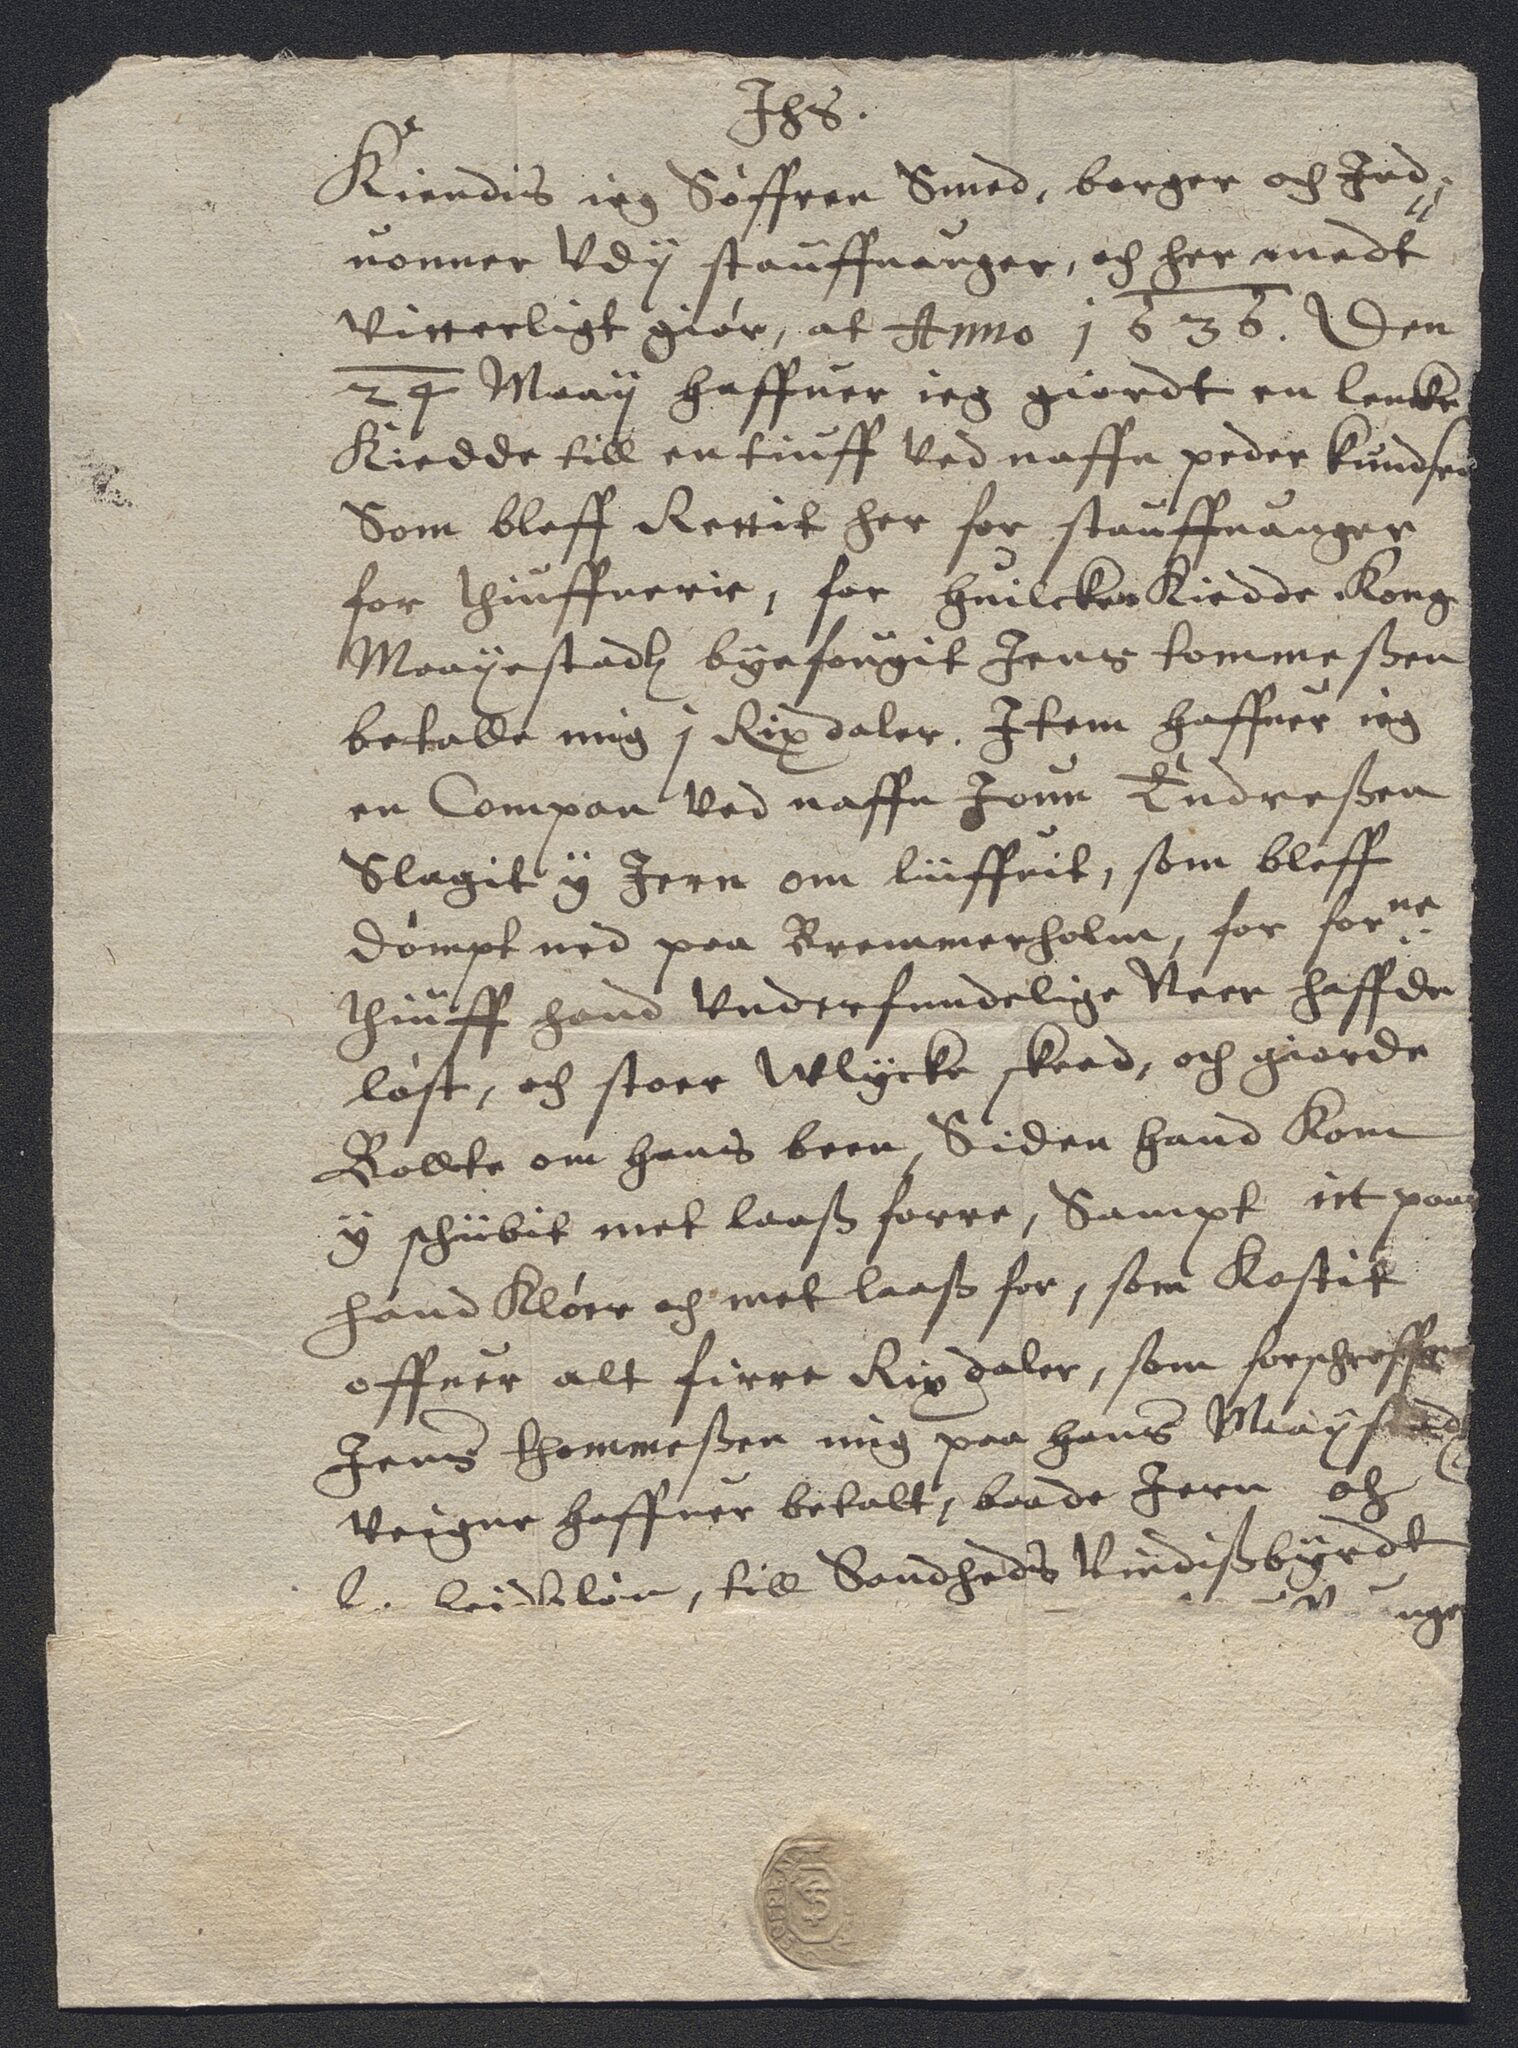 Jhs.
Kiendis ieg Søffren Smed, borger och Ind¸
uonner Vdÿ stauffuanger, och her medt
Vitterligt giør, at Anno 1636. Den
24 Maaÿ haffuer ieg giordt en lencke
Kiedde till en tiuff Ved naffn peder kundsen
Som bleff Rettit her for stauffuanger
for thiuffuerie, for huilcken Kiedde Kong
Maaÿestadtz byefougit Jens tommeßen
betalle mig j Rixdaler. Item haffuer ieg
en Compan Ved naffn Joun Endreßen
Slagit ÿ Jern om liiffuit, som bleff
dømpt ned paa Bremmerholm, for forne
thiuff hand Vnderfundelige Veer haffde
løst, och stoer Wlÿcke skeed, och giorde
Bollte om hans been, Siden hand Kom
ÿ schiibit met laaß forre, Sampt itt paar
hand Kløer och met laaß for, som Kostit
offuer alt firre Rixdaler, som forschreffne
Jens thommeßen mig paa hans Maaÿstadtz
Veigne haffuer betalt, baade Jern och
till Sandheds Vindißbyrdt